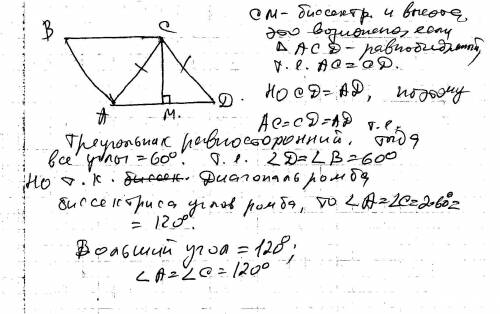 B C
A M. D.
CM - биссектр. и высота
это возможно, если
Δ ACD - равнобедренный,
т.е. AC = CD.
Но CD = AD, поэтому
AC = CD = AD т.е.
Треугольник равносторонний, тогда
все углы = 60°. т.е. ∠D = ∠B = 60°
Но т.к. биссек. Диагональ ромба
биссектриса углов ромба, то ∠A = ∠C = 2·60° =
= 120°.
Больший угол = 120°;
∠A = ∠C = 120°